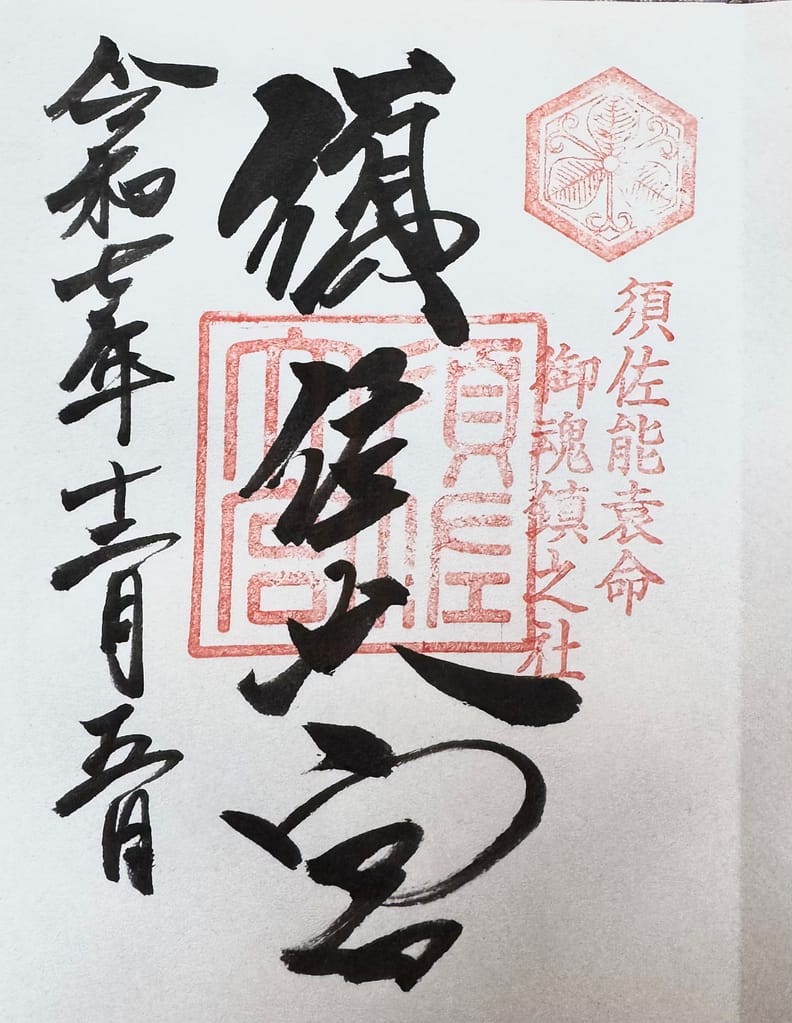 須佐能袁命
御魂鎮之社
須佐大宮
須佐
大宮
令和七年十二月五日